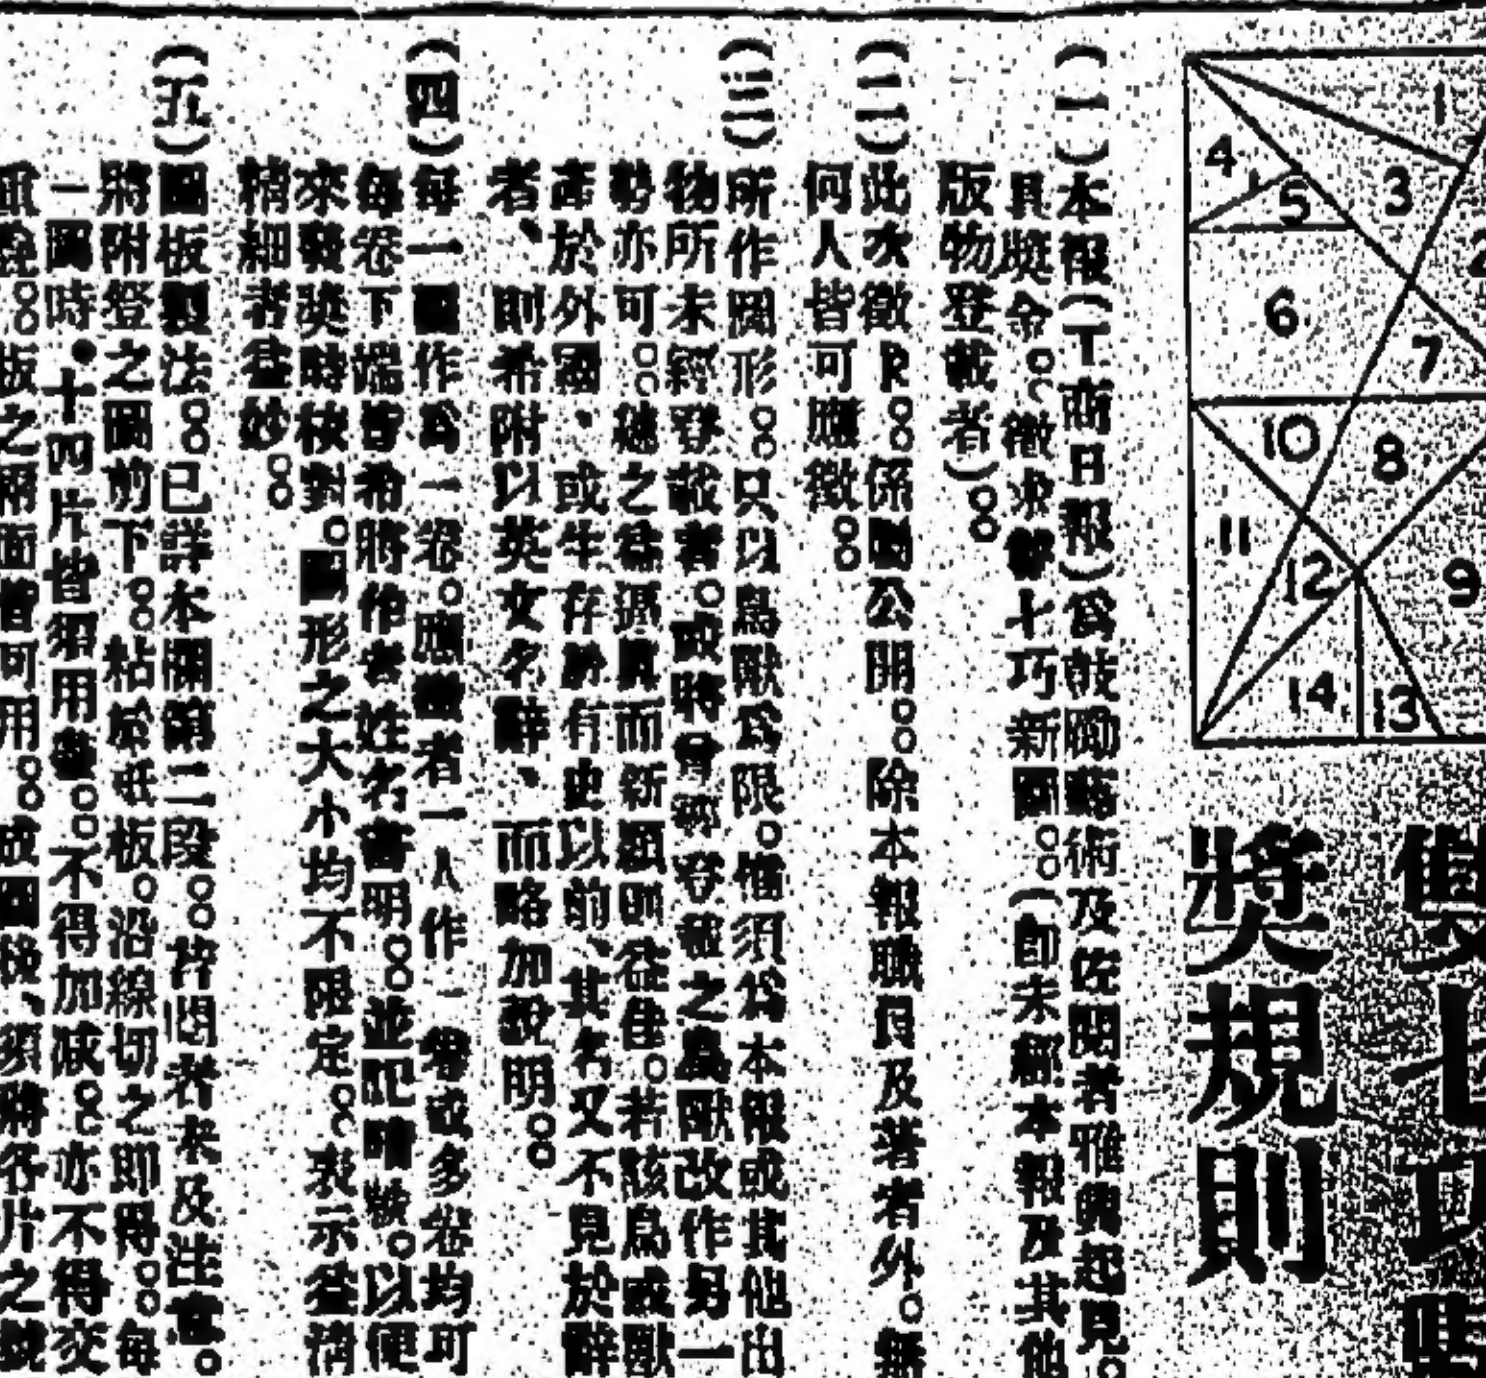 雙七巧
獎規則
1
2
3
4
5
6
7
8
9
10
11
12
13
14
(一)本報(工商日報)為鼓勵藝術及佐閱者雅興起見。
具獎金。徵求雙七巧新圖。(即未經本報及其他
版物登載者)。
(二)此次徵求。係屬公開。除本報職員及著者外。無
何人皆可應徵。
(三)所作圖形。只以鳥獸為限。惟須為本報或其他出
物所未經登載者。或時曾經登載之鳥獸改作另一
勢亦可。總之為逼真而新穎則益佳。若該鳥或獸
產於外國、或生存於有史以前、其名又不見於辭
者、則希附以英文名辭、而略加說明。
(四)每一圖作為一卷。應徵者一人作一卷或多卷均可
每卷下端皆希將作者姓名書明。並記暗號。以便
來發獎時核對。圖形之大小均不限定。表示益清
精細者益妙。
(五)圖板製法。已詳本欄第二段。若閱者未及注意。
將附登之圖剪下。粘於紙板。沿線切之即得。每
一圖時・十四片皆須用盡。不得加減。亦不得交
重疊。板之兩面皆可用。成圖後、須將各片之